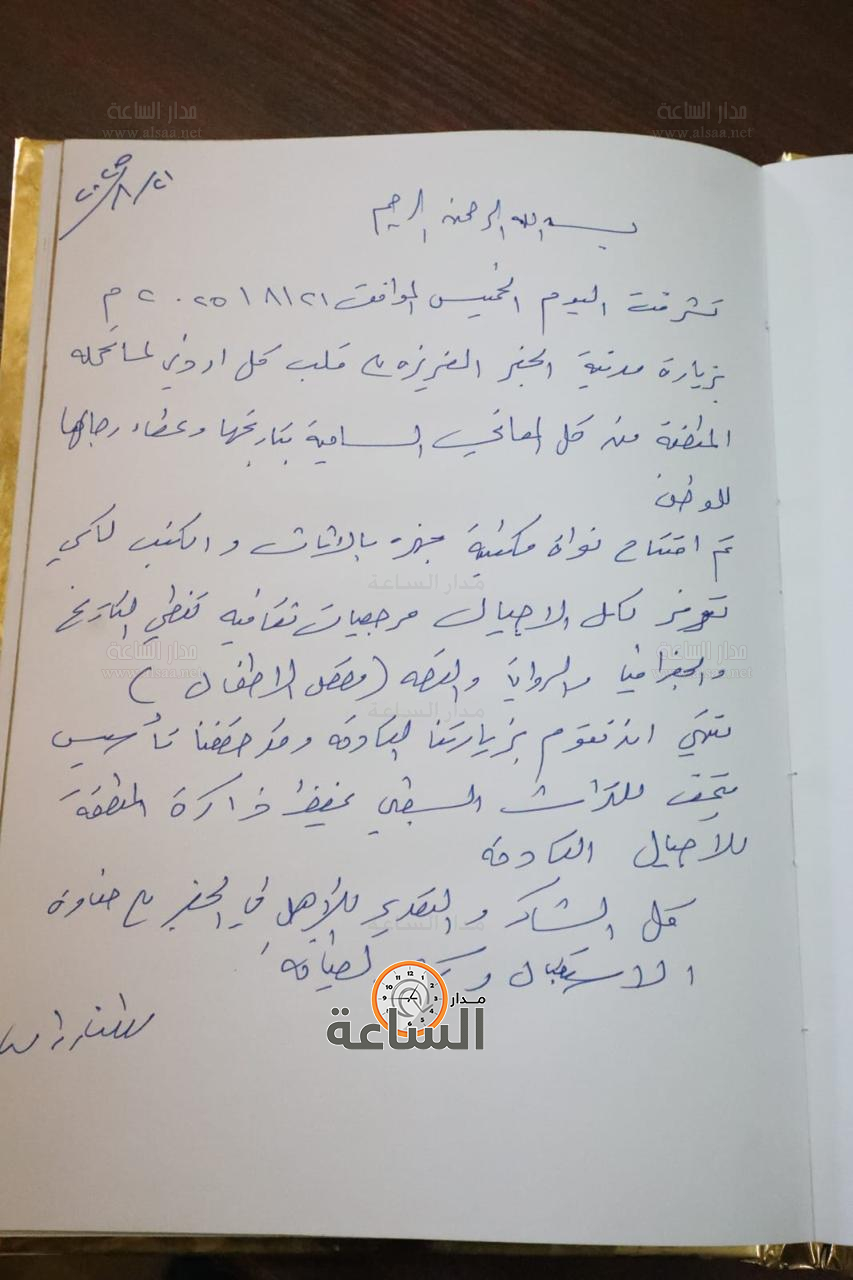 مدار الساعة
www.alsaa.net
مدار الساعة
www.alsaa.net
٢٠٢٥/٨/٢١
بسم الله الرحمن الرحيم
تشرفت اليوم الخميس الموافق ٢٠٢٥/٨/٢١ م
بزيارة مدينة الجفر العزيزة على قلب كل اردني لما تحمله
المنطقة من كل المعاني السامية بتاريخها وعطاء رجالها
للوطن
تم افتتاح نواة مكتبة مجهزة بالاثاث و الكتب لكي
مدار الساعة
لكل الاجيال مرجعيات ثقافية تغطي التاريخ
والجغرافيا والرواية والقصه (وقصص الاطفال)
مدار الساعة
www.alsaa.net
مدار الساعة
www.alsaa.net
مدار الساعة
نتمنى ان نقوم بزيارتنا القادمة وقد حققنا تأسيس
متحف للتراث يحفظ ذاكرة المنطقة
للأجيال القادمة
كل الشكر و التقدير للأهل في الجفر على حفاوة
مدار الساعة
الاستقبال و الضيافة
مدار
الساعة